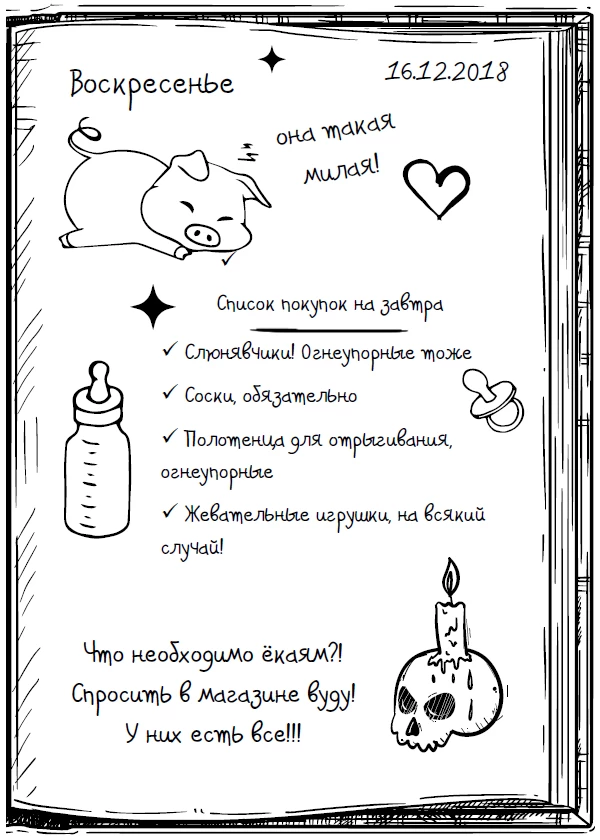 Воскресенье
16.12.2018
она такая
милая!
Список покупок на завтра
✓ Слюнявчики! Огнеупорные тоже
✓ Соски, обязательно
✓ Полотенца для отрыгивания,
огнеупорные
✓ Жевательные игрушки, на всякий
случай!
Что необходимо ёкаям?!
Спросить в магазине вуду!
У них есть все!!!